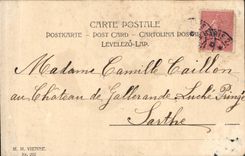 CARTE POSTALE
POSTKARTE - POST CARD - CARTOLINA POSTALE
LEVELEZŐ-LAP.
Madame Camille Caillon
au Château de Gallerande Luché Pringé
Sarthe
M. M. VIENNE.
Nr.